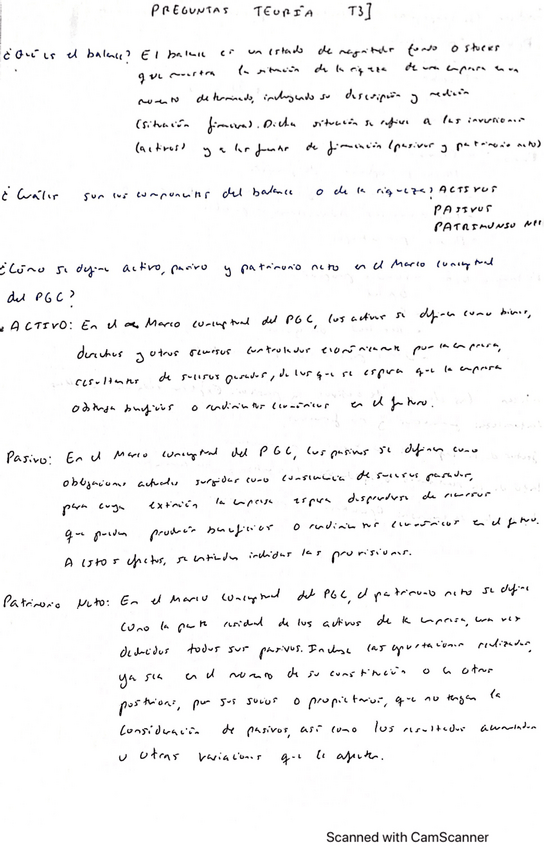 PREGUNTAS TEORÍA T3]
¿Qué es el balance? El balance es un estado de magnitudes fondo o stocks
que muestra la situación de la riqueza de una empresa en un
momento determinado, incluyendo su descripción y medición
(situación financiera). Dicha situación se refiere a las inversiones
(activos) y a las fuentes de financiación (pasivos y patrimonio neto)
¿Cuáles son los componentes del balance o de la riqueza? ACTIVOS
PASIVOS
PATRIMONIO NETO
¿Cómo se define activo, pasivo y patrimonio neto en el Marco conceptual
del PGC?
ACTIVO: En el Marco conceptual del PGC, los activos se definen como bienes,
derechos y otros recursos controlados económicamente por la empresa,
resultantes de sucesos pasados, de los que se espera que la empresa
obtenga beneficios o rendimientos económicos en el futuro.
Pasivo: En el Marco conceptual del PGC, los pasivos se definen como
obligaciones actuales surgidas como consecuencia de sucesos pasados,
para cuya extinción la empresa espera desprenderse de recursos
que puedan producir beneficios o rendimientos económicos en el futuro.
A estos efectos, se entienden incluidas las provisiones.
Patrimonio Neto: En el Marco conceptual del PGC, el patrimonio neto se define
como la parte residual de los activos de la empresa, una vez
deducidos todos sus pasivos. Incluye las aportaciones realizadas,
ya sea en el momento de su constitución o en otros
posteriores, por sus socios o propietarios, que no tengan la
consideración de pasivos, así como los resultados acumulados
u otras variaciones que le afecten.
Scanned with CamScanner